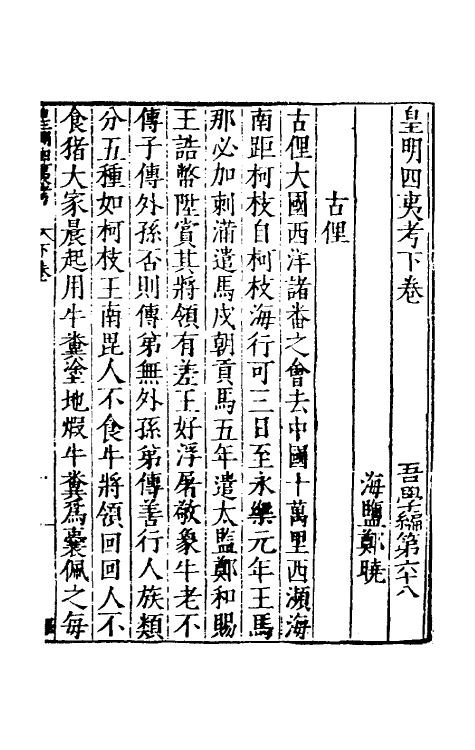 皇明四夷考下卷　吾學編第六十八
海鹽鄭曉
古俚
古俚大國西洋諸畨之會去中國十萬里西瀕海
南距柯枝自柯枝海行可三日至永樂元年王馬
那必加剌滿遣馬戍朝貢馬五年遣太監鄭和賜
王誥幣陞賞其將領有差王好浮屠敬象牛老不
傳子傳外孫否則傳弟無外孫弟傳善行人族類
分五種如柯枝王南毘人不食牛將領回回人不
食猪大家晨起用牛糞塗地煅牛糞爲囊佩之每
皇明四夷考　下卷